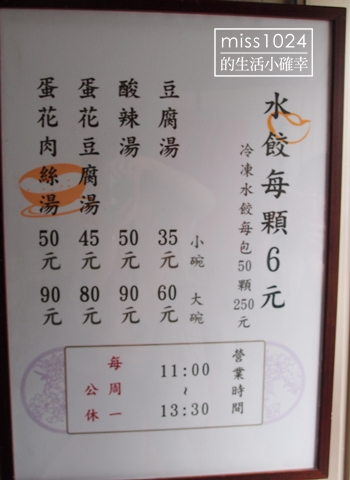 miss1024
的生活小確幸
水餃每顆6元
冷凍水餃每包50顆250元
小碗 大碗
豆腐湯 35元 60元
酸辣湯 50元 90元
蛋花豆腐湯 45元 80元
蛋花肉絲湯 50元 90元
營業時間
11:00
~
13:30
每周一
公休